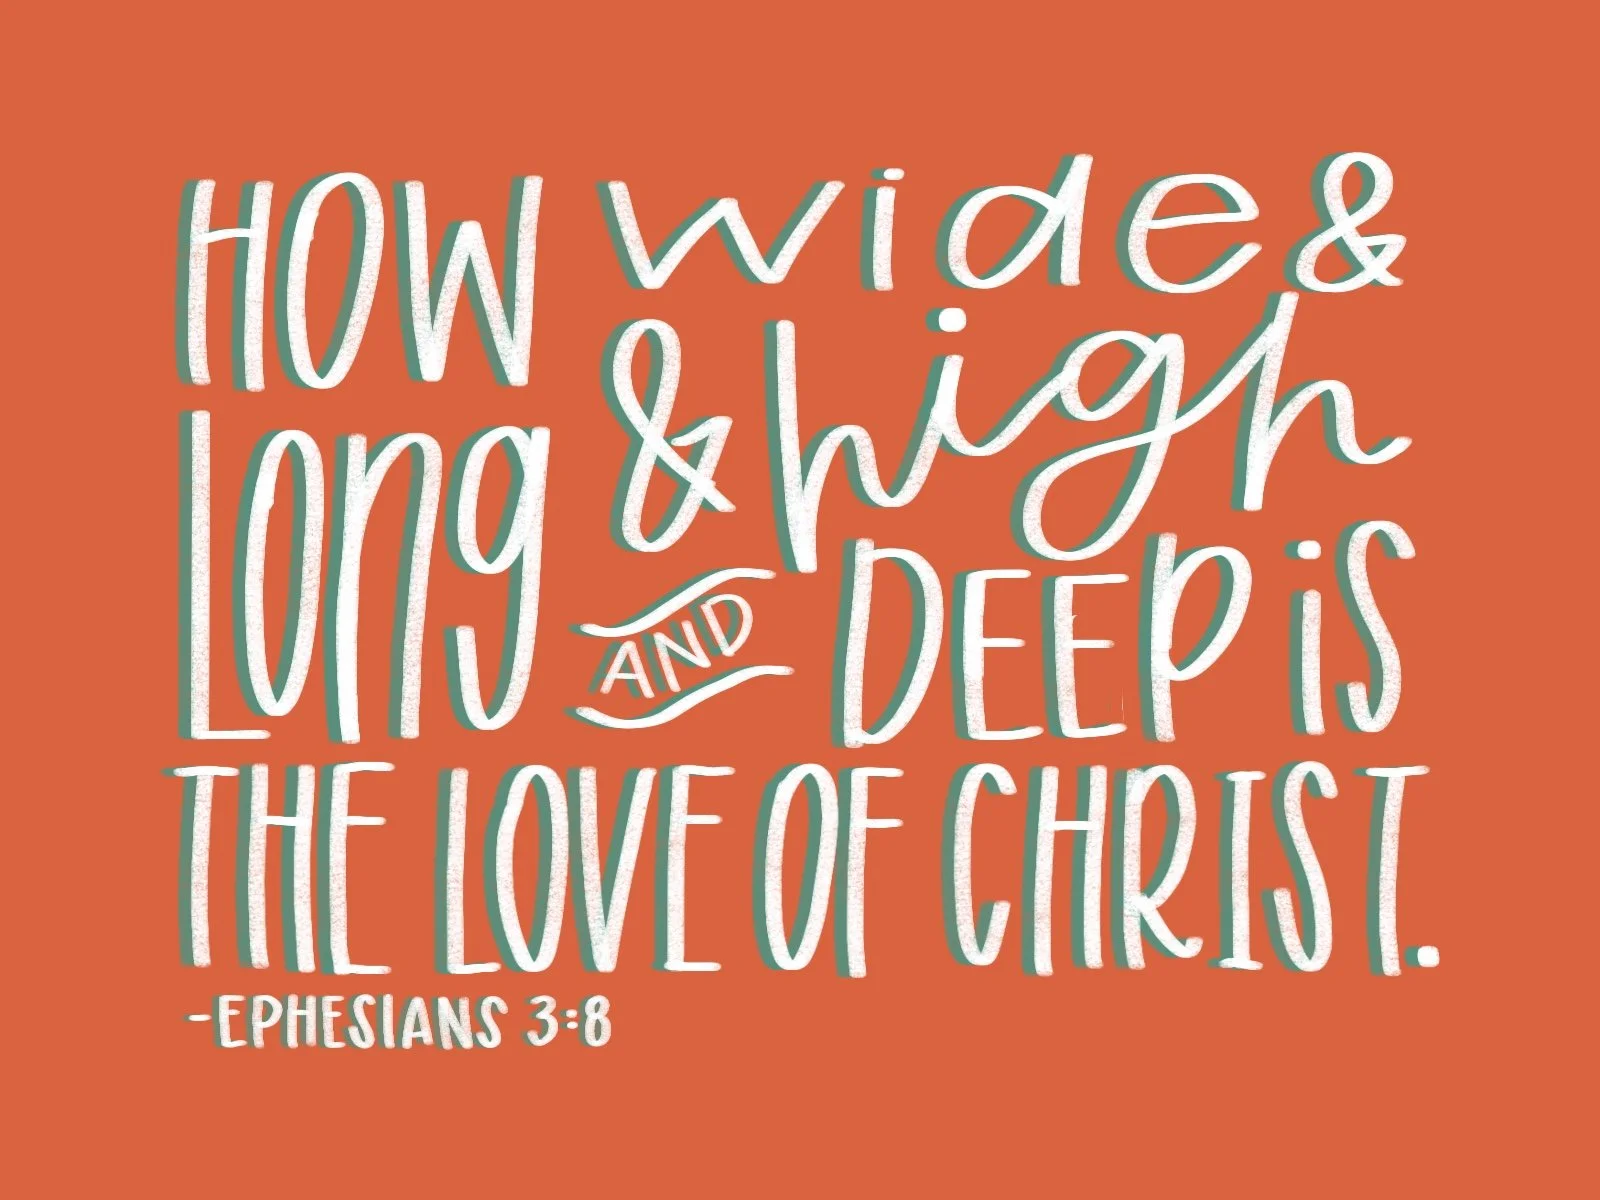 HOW wide &
Long & high
AND DEEP iS
THE LOVE OF CHRIST.
-EPHESIANS 3:8